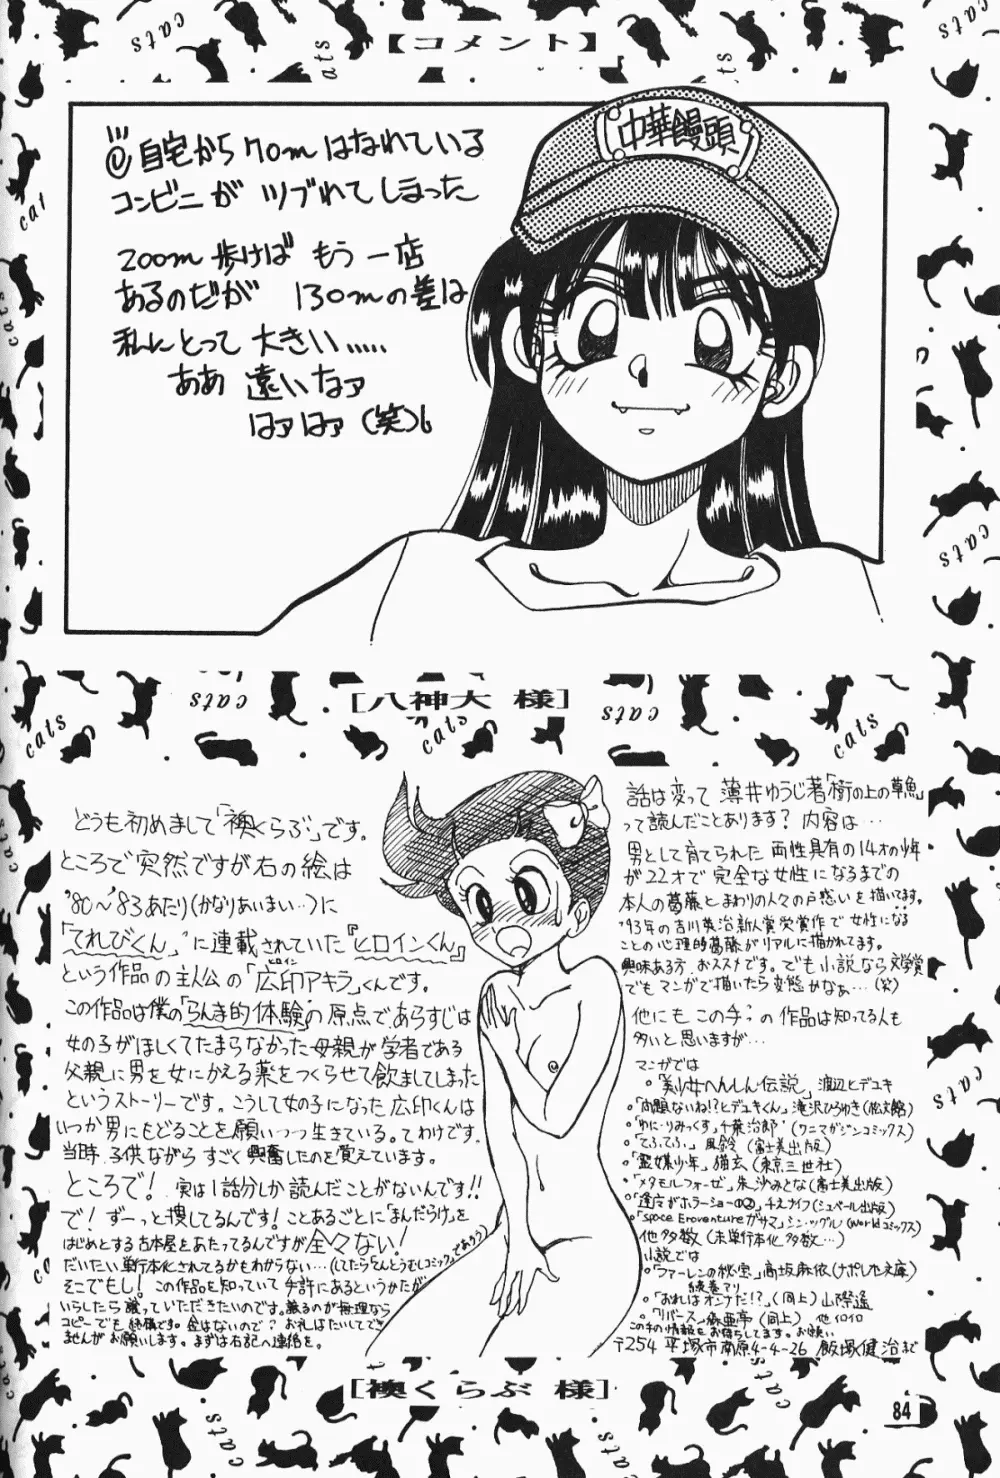 【コメント】
中華饅頭
自宅から70mはなれている
コンビニが ツブれてしまった
200m 歩けば もう一店
あるのだが 130mの差は
私にとって 大きい.....
ああ 遠いなァ
はァはァ(笑)
[八神大 様]
どうも初めまして「襖くらぶ」です。
ところで突然ですが右の絵は
'80〜'83あたり(かなりあいまい…)に
「てれびくん」に連載されていた『ヒロインくん』
という作品の主人公の「広印アキラ」くんです。
ヒロイン
この作品は僕の「らんま的体験」の原点で、あらすじは
女の子がほしくてたまらなかった母親が学者である
父親に男を女にかえる薬をつくらせて飲ましてしまった
というストーリーです。こうして女の子になった広印くんは
いつか男にもどることを願いつつ生きている。てわけです。
当時、子供ながら すごく興奮したのを覚えています。
ところで! 実は1話分しか読んだことがないんです!!
で! ずーっと捜してるんです! ことあるごとに「まんだらけ」を
はじめとする古本屋をあたってるんですが全々ない!
だいたい単行本化されてるかもわからない…(してたらてんとうむしコミックスであろう)
そこでもし! この作品を知っていて手許にあるというかたが
いらしたら譲っていただきたいのです。譲るのが無理なら
コピーでも結構です。金はないので? お礼はたいしてでき
ませんがお願いします。まずは右記へ連絡を。
話は変って 薄井ゆうじ著「樹の上の草魚」
って読んだことあります? 内容は…
男として育てられた 両性具有の14才の少年
が22才で 完全な女性になるまでの
本人の葛藤とまわりの人々の戸惑いを描いてます。
'93年の吉川英治新人賞受賞作で女性になる
ことの心理的葛藤がリアルに描かれてます。
興味ある方、おススメです。でも小説なら文学賞
でもマンガで描いたら変態かなぁ…(笑)
他にも この手の作品は知ってる人も
多いと思いますが…
マンガでは
。「美少女へんしん伝説」渡辺ヒデユキ
。「問題ないね!?ヒデユキくん」滝沢ひろゆき(松文館)
。「ゆに・りみっくす」千葉治郎(ワニマガジンコミックス)
。「てふてふ」風鈴(富士美出版)
。「霊媒少年」猫玄(東京三世社)
。「メタモルフォーゼ」朱沙みとな(富士美出版)
。「逢店がホラーショーの②」チネナイフ(シュベール出版)
。「Space Eroventureガサマ」シン・ツグル(Worldコミックス)
他多数(未単行本化多数…)
小説では
。「ファーレンの秘宝」高坂麻依(ナポレオン文庫)
続巻アリ
。「おれはオンナだ!?」(同上)山際遙
。「リバース」森亜亭(同上)他イロイロ
この手の情報をお待ちしてます。お願い
〒254 平塚市南原4-4-26 飯塚健治まで
[襖くらぶ 様]
84
cats
cats
cats
cats
cats
cats
cats
cats
cats
cats
cats